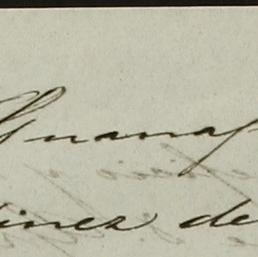 Guanaj
inez de